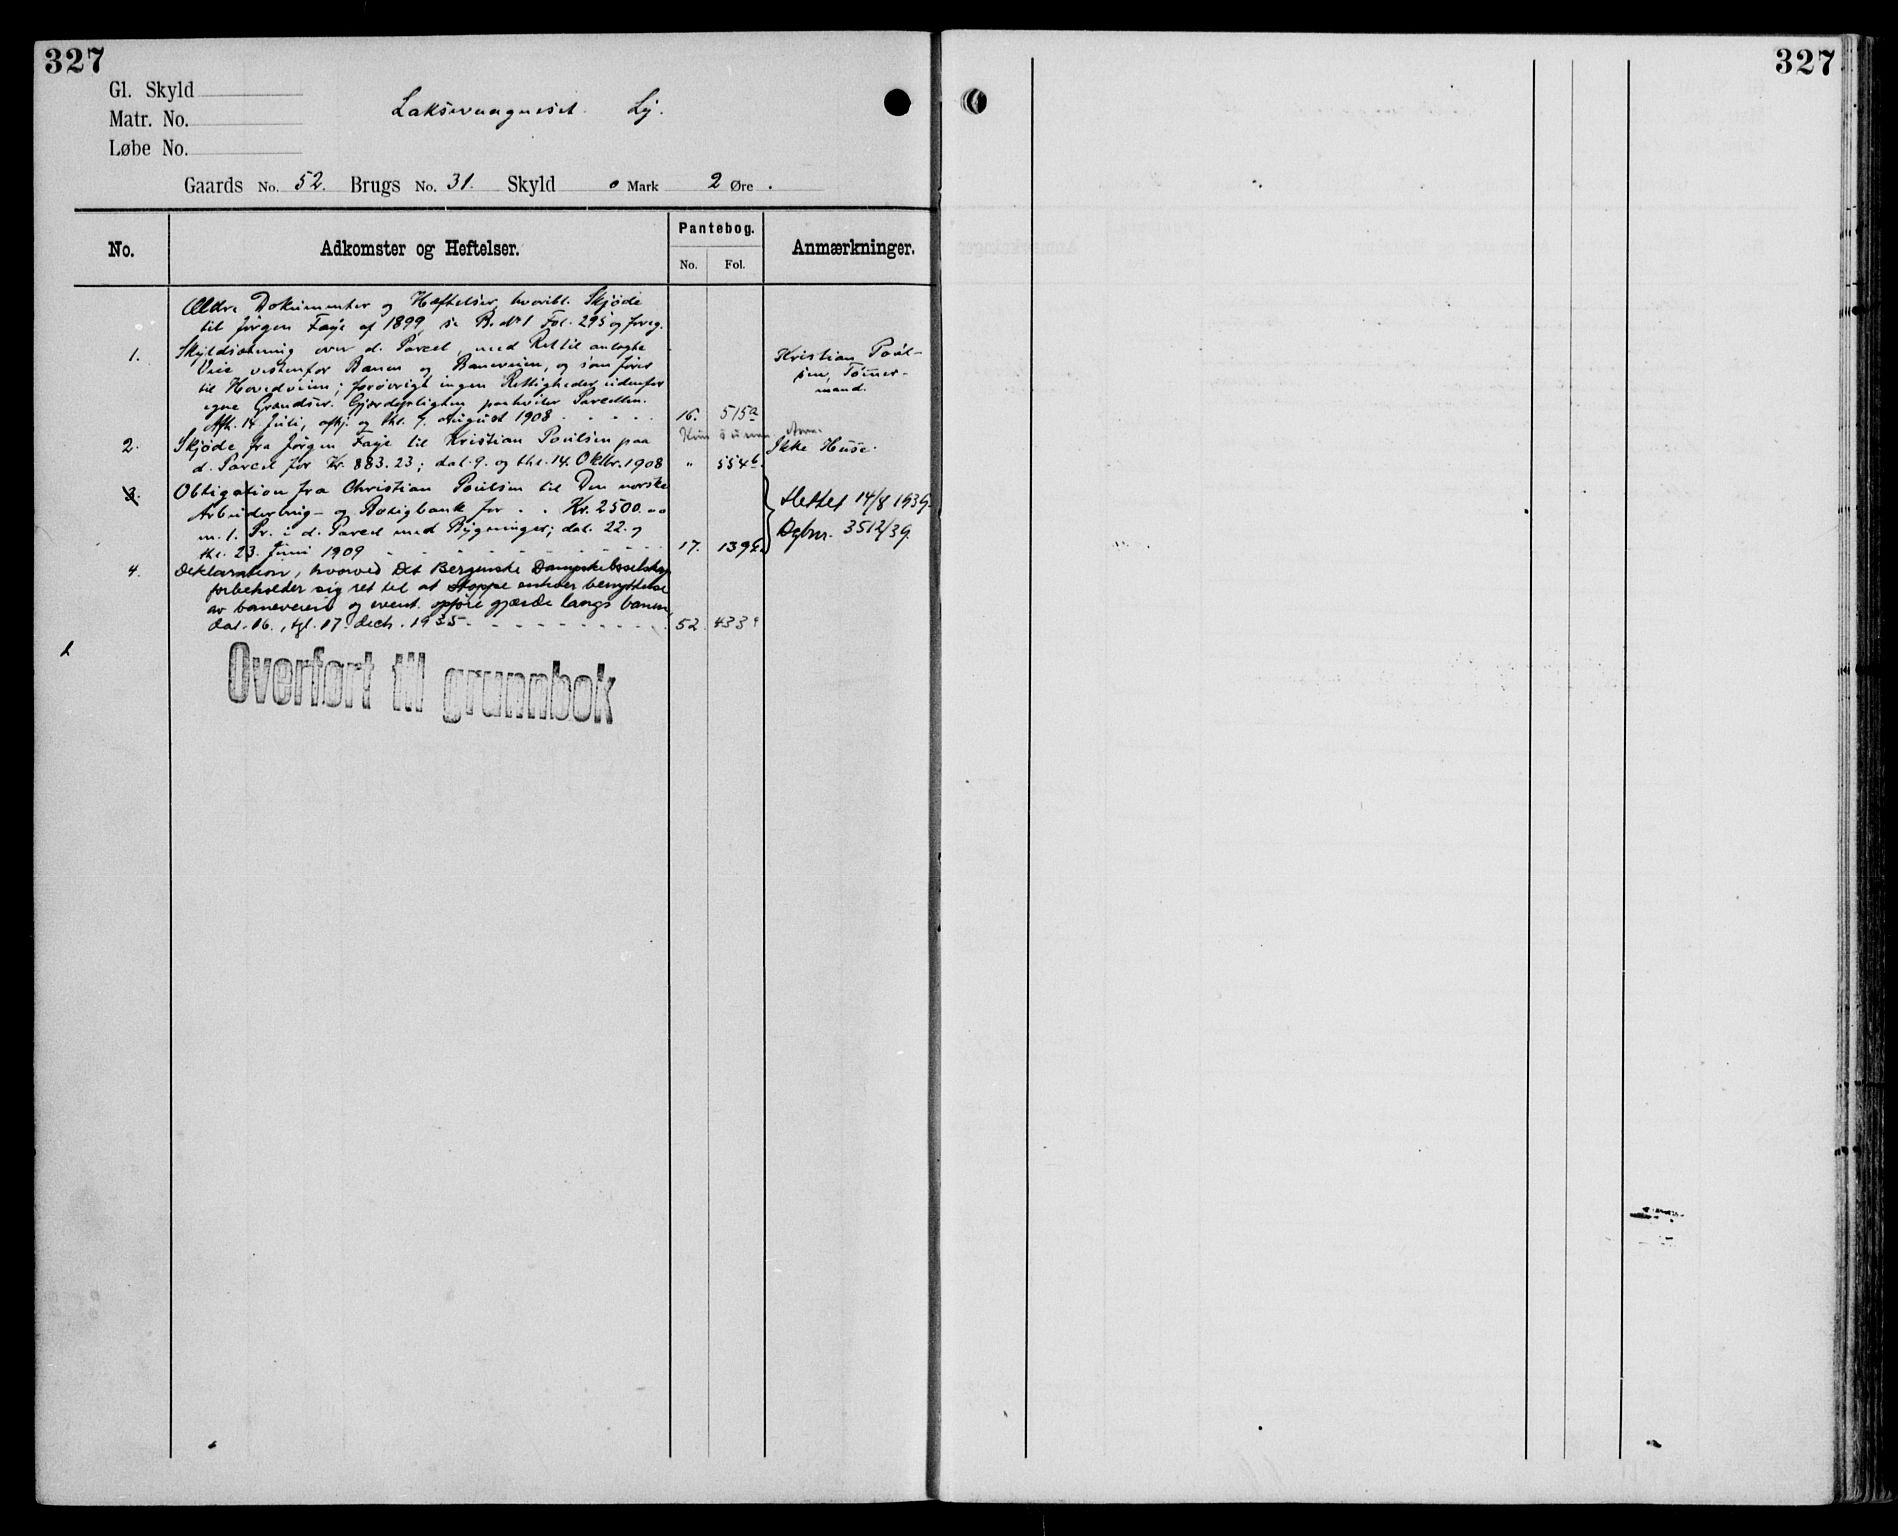 327
327
Gl. Skyld
Matr. No.
Løbe No.
Laksevaagneset. Lj.
Gaards No. 52. Brugs No. 31. Skyld 0 Mark 2 Øre.
No.
Adkomster og Heftelser.
Pantebog.
No. Fol.
Anmærkninger.
Ældre Dokumenter og Hæftelser, hvoribl. Skjøde
til Jørgen Faye af 1899, se B. No 1 Fol. 295 og foreg.
1. Skyldsætning over d. Parcel, med Ret til anlagte
Veie vestenfor Banen og Baneveien, og som fører
til Hovedveien; forøvrigt ingen Rettigheder udenfor
egne Grændser. Gjerdepligten paahviler Parcellen.
Afh. 14 Juli, afhj. og thl. 7. August 1908 16. 515a
Kristian Poul-
sen, Tømer-
mand.
2. Skjøde fra Jørgen Faye til Kristian Poulsen paa
d. Parcel for Kr. 883.23; dat. 9. og thl. 14. Oktbr. 1908 " 554b.
Ikke Huse.
3. Obligation fra Christian Poulsen til Den norske
Arbeiderbrug- og Boligbank for . . Kr. 2500.00
m. 1. Pr. i d. Parcel med Bygninger; dat. 22. og
thl. 23. Juni 1909 17. 139
Slettet 14/8 1939.
Dgbnr. 3512/39.
4. Deklaration, hvorved Det Bergenske Dampskibsselskap
forbeholder sig ret til at stoppe enhver benyttelse
av baneveien og event. opføre gjærde langs banen,
Dat. 16., tgl. 17. dech. 1935 52. 433
Overført til grunnbok